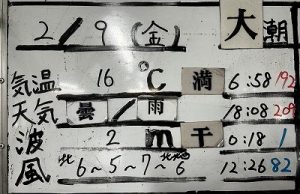 2/9(金) 大潮
気温 16℃ 満 6:58 192
天気 曇/雨 18:08 209
波 2m 干 0:18 1
風 北6~5~7~北北西6 12:26 82